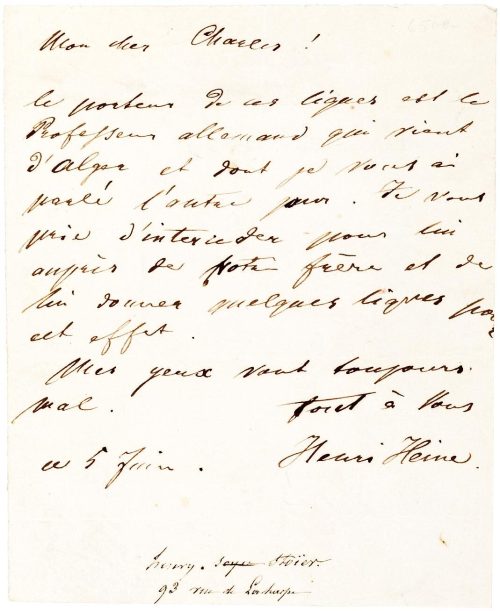 Mon cher Charles !
le porteur de ces lignes est le
Professeur allemand qui vient
d'Alger et dont je vous ai
parlé l'autre jour. Je vous
prie d'interceder pour lui
auprès de votre frère et de
lui donner quelques lignes pour
cet effet.
Mes yeux vont toujours
mal. tout à Vous
ce 5 Juin. Henri Heine.
93 rue de